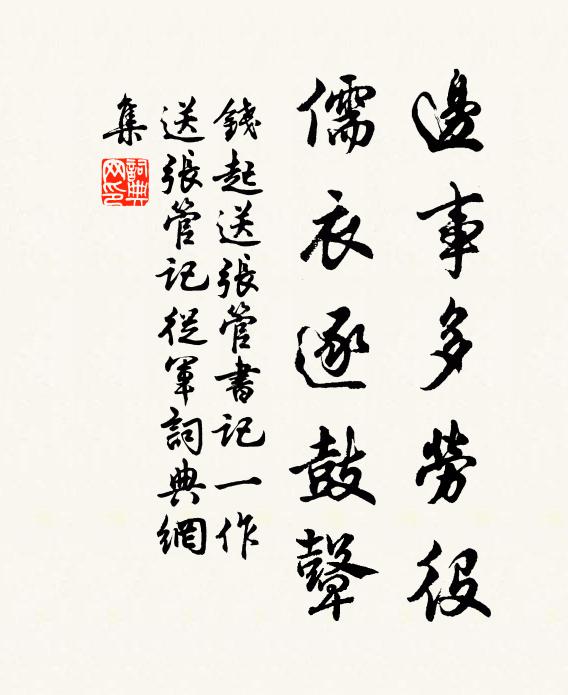 邊事多勞役
儒衣逐鼓鼙
錢起送張管書記一作
送張管記從軍詞典網
集
詞典
网印